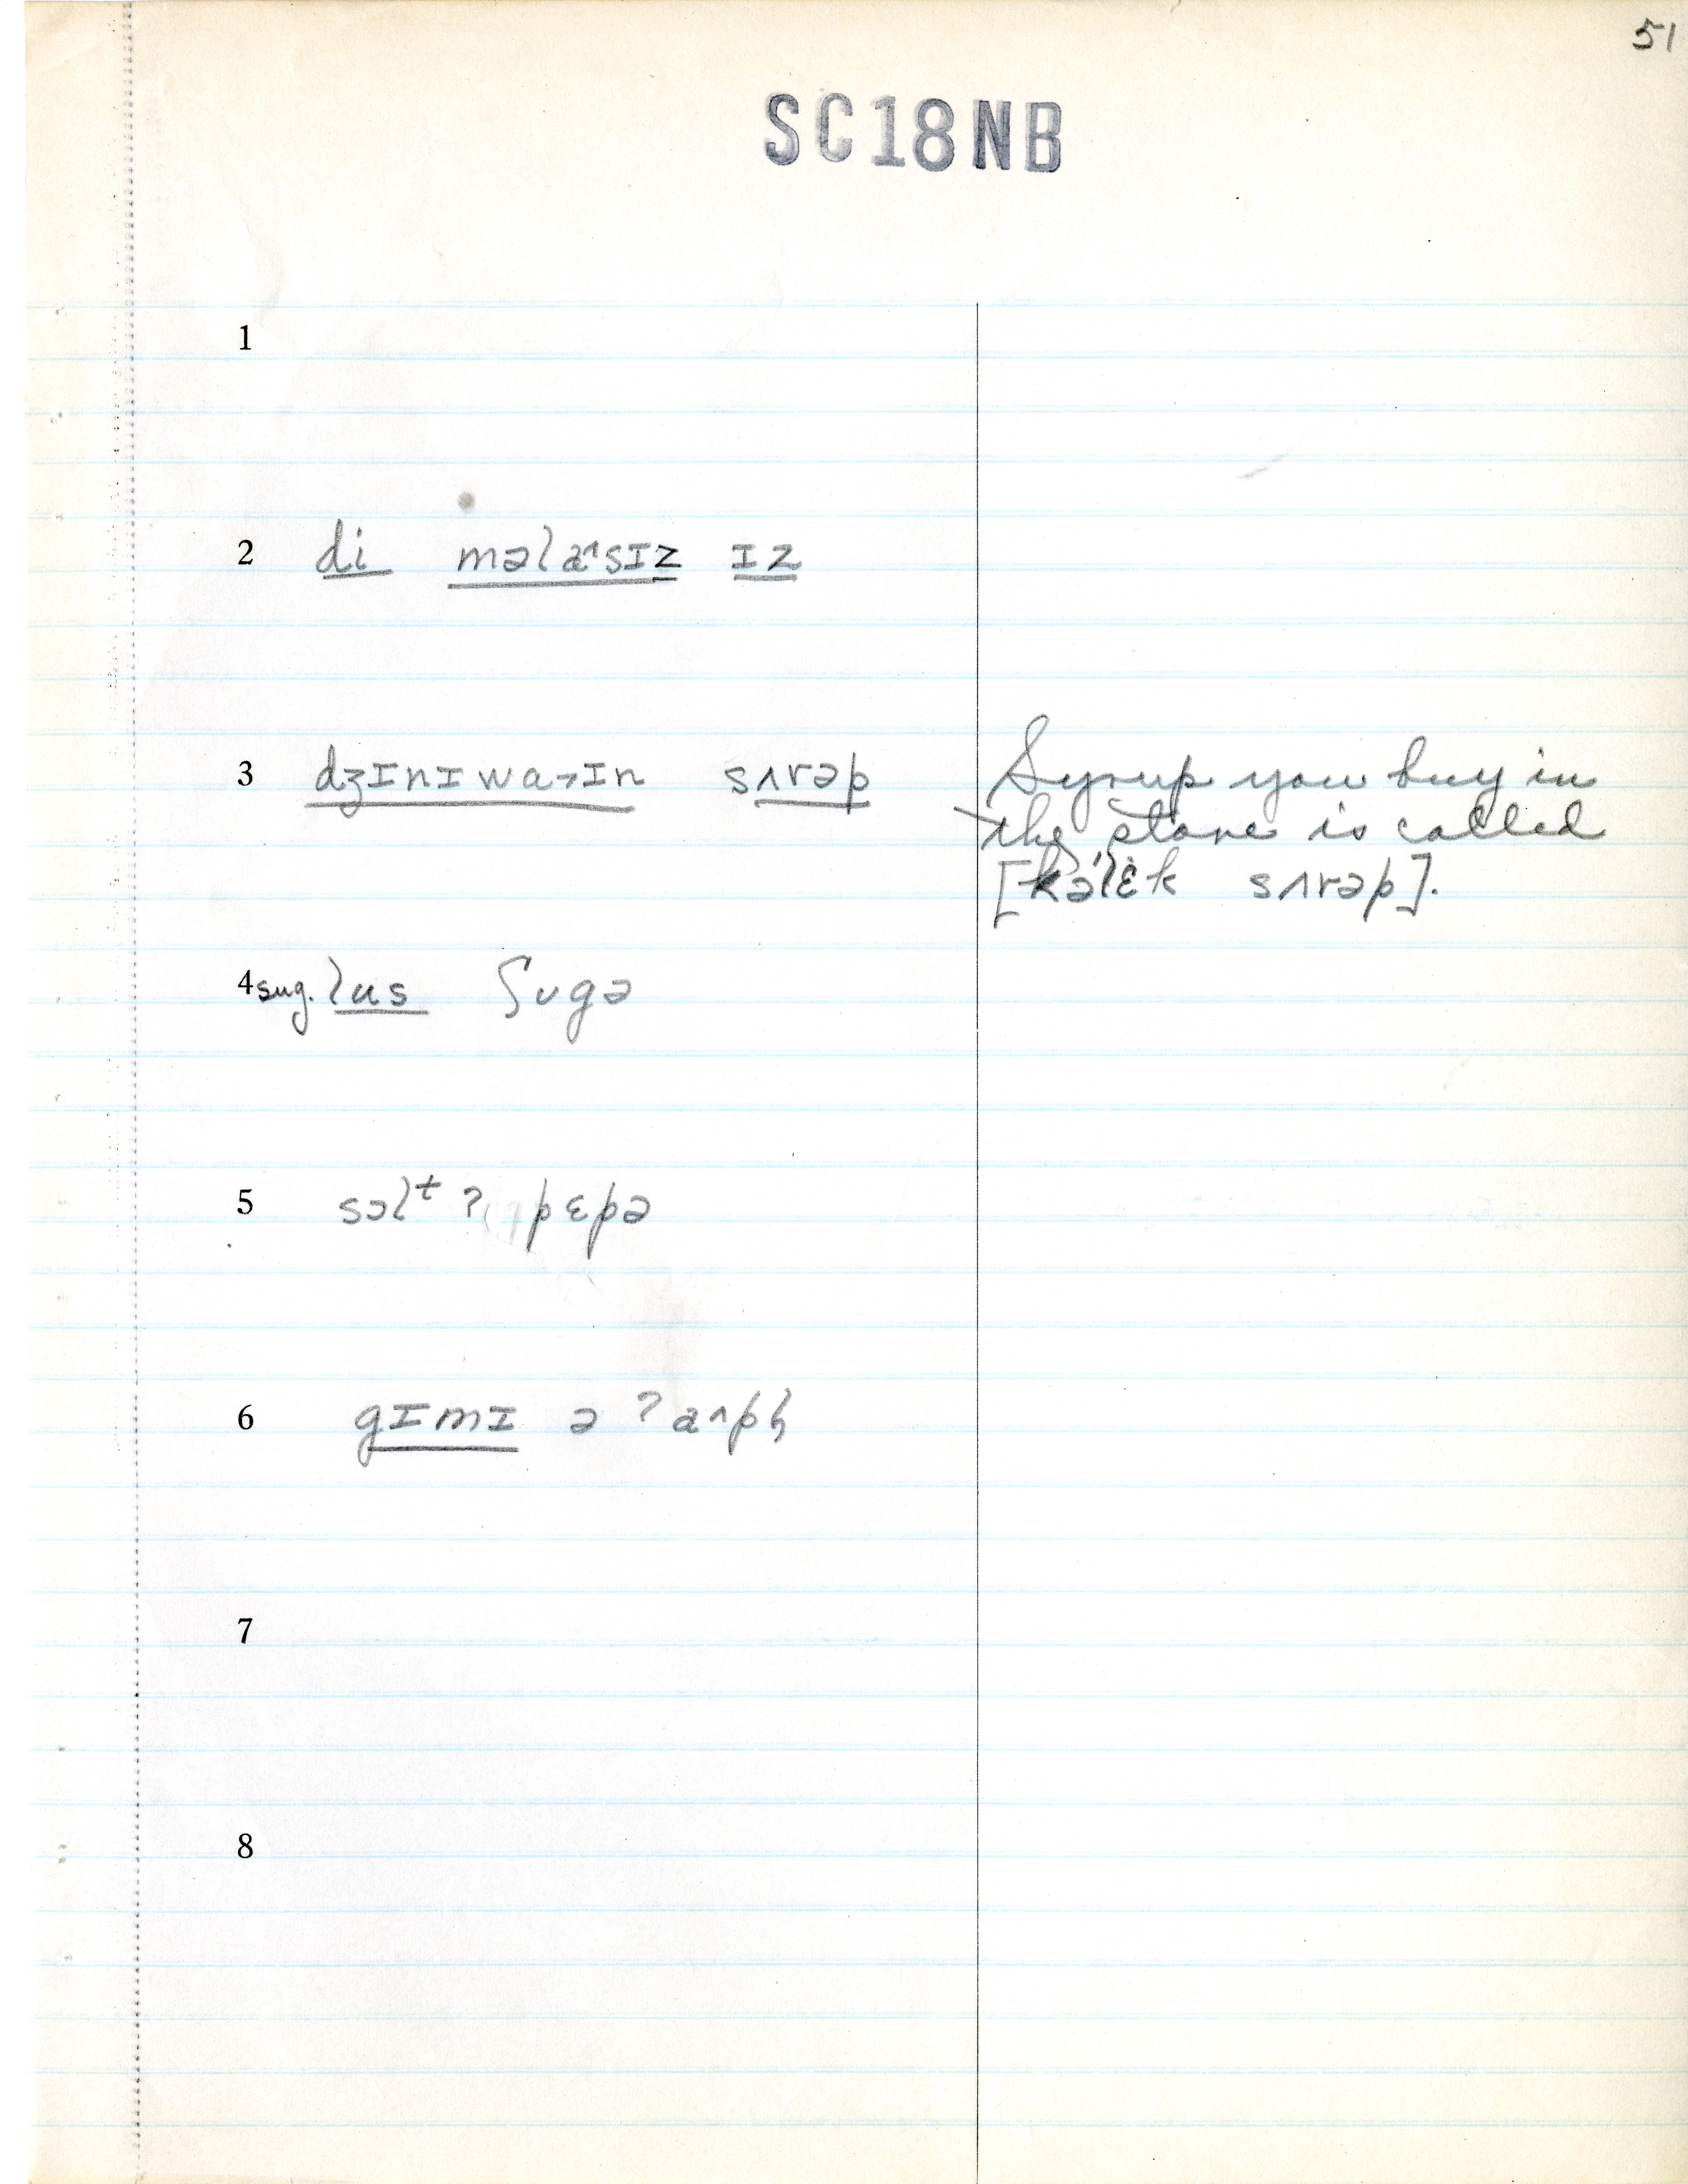 51
SC18NB
1
2 di məlæ˄sɪz ɪz
3 dʒɪnɪwa˃ɪn sʌrəp
Syrup you buy in
the store is called
[kə'lɛk sʌrəp].
4 sug. lus ʃugə
5 sɔlᵗ ʔ pɛpə
6 gɪmɪ ə ʔa˄pɦ
7
8